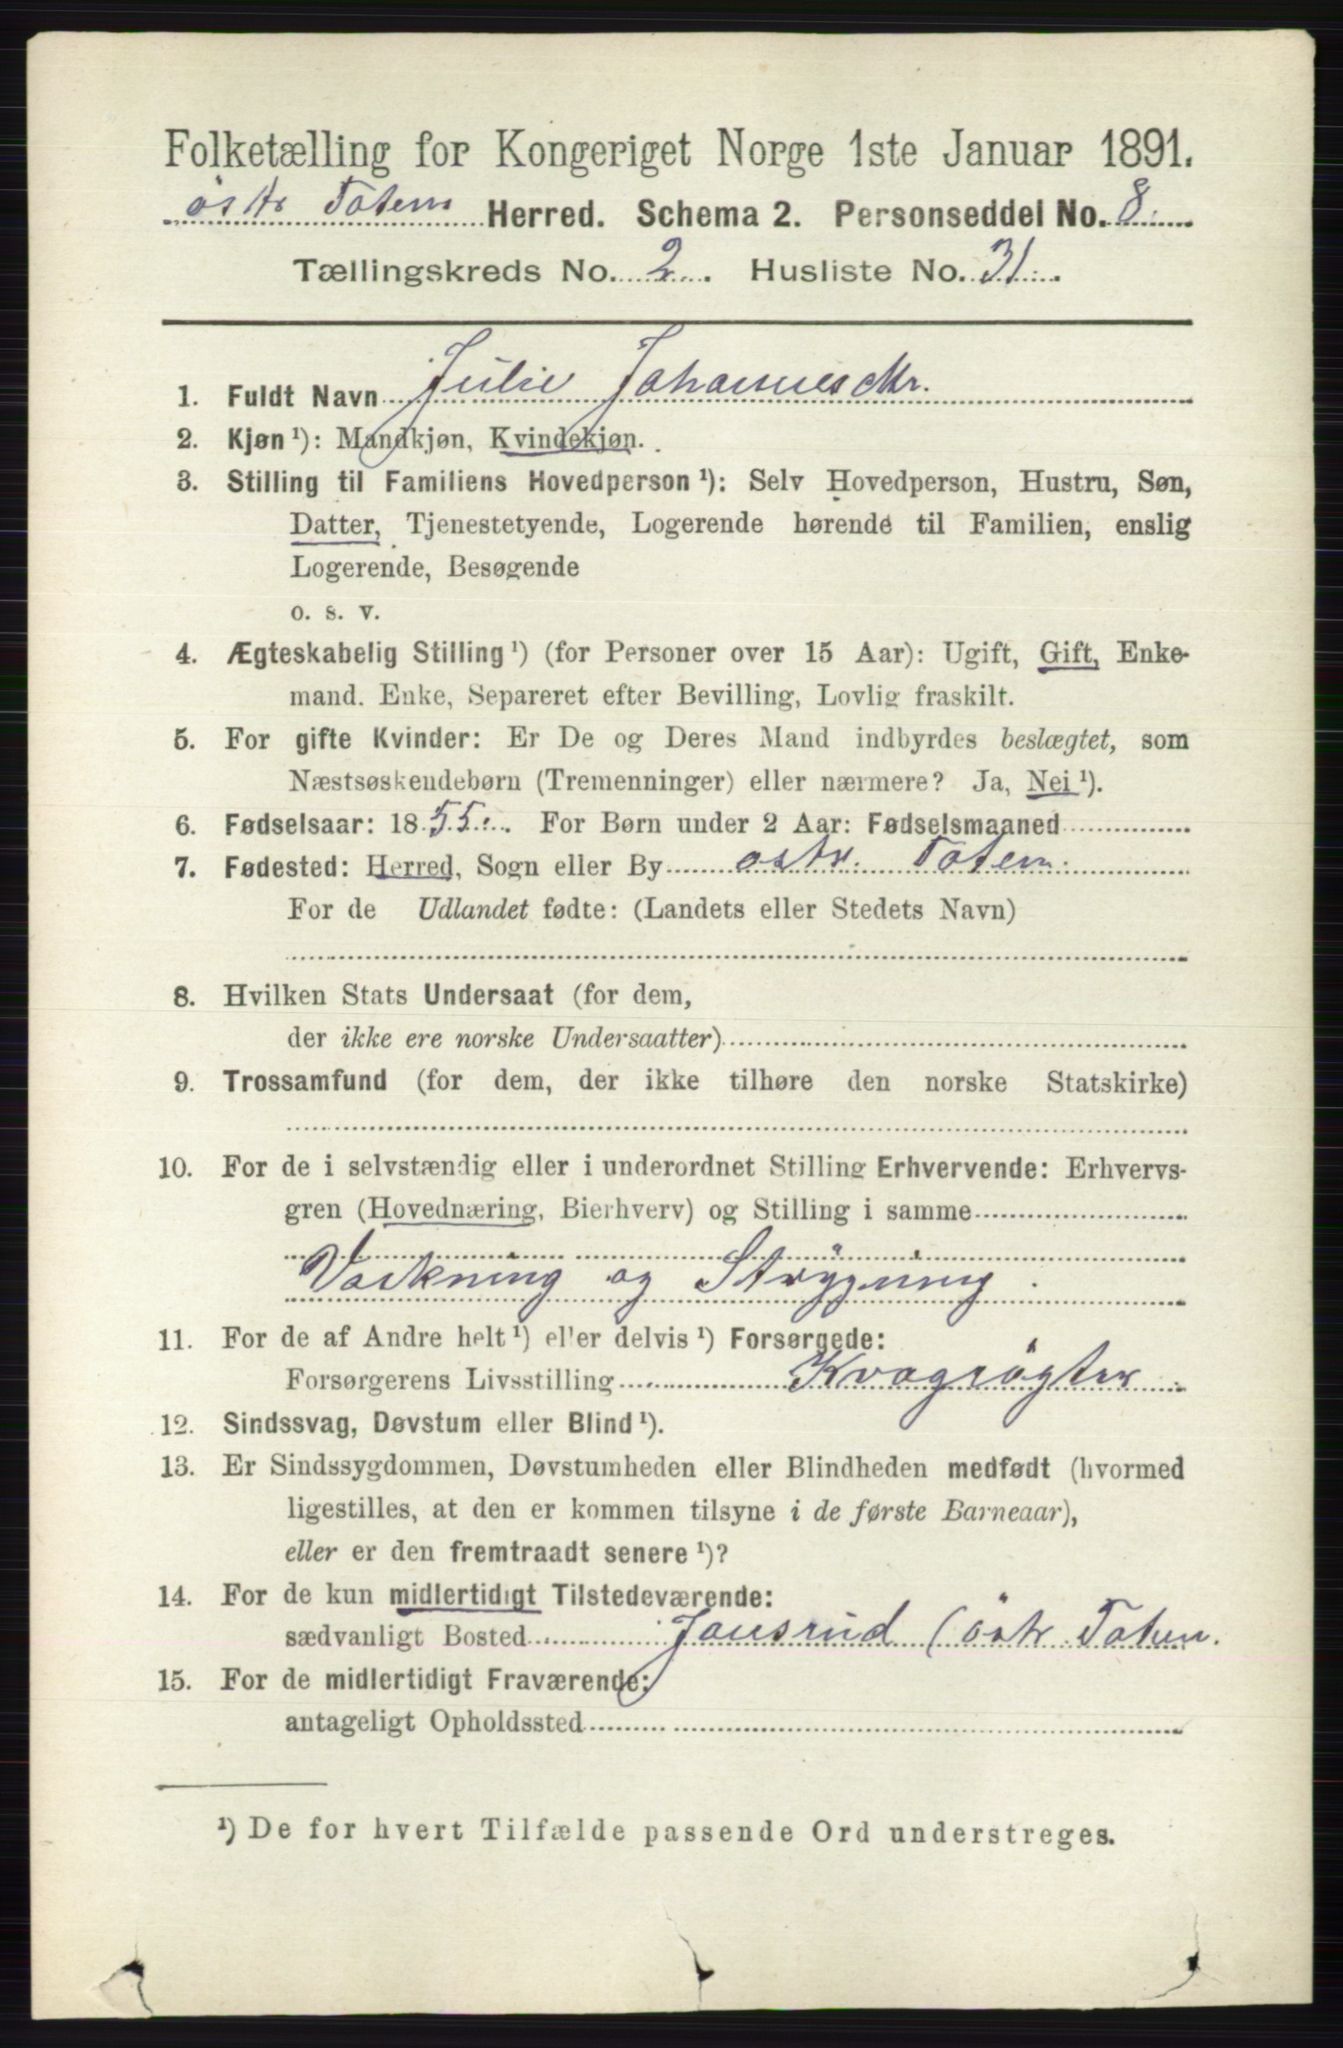 Folketælling for Kongeriget Norge 1ste Januar 1891.
östr Toten Herred. Schema 2. Personseddel No. 8.
Tællingskreds No. 2. Husliste No. 31.
1. Fuldt Navn Julie Johannesdtr.
2. Kjøn ¹): Mandkjøn, Kvindekjøn.
3. Stilling til Familiens Hovedperson ¹): Selv Hovedperson, Hustru, Søn,
Datter, Tjenestetyende, Logerende hørende til Familien, enslig
Logerende, Besøgende
o. s. v.
4. Ægteskabelig Stilling ¹) (for Personer over 15 Aar): Ugift, Gift, Enke-
mand. Enke, Separeret efter Bevilling, Lovlig fraskilt.
5. For gifte Kvinder: Er De og Deres Mand indbyrdes beslægtet, som
Næstsøskendebørn (Tremenninger) eller nærmere? Ja, Nei ¹).
6. Fødselsaar: 1855. For Børn under 2 Aar: Fødselsmaaned
7. Fødested: Herred, Sogn eller By östr. Toten.
For de Udlandet fødte: (Landets eller Stedets Navn)
8. Hvilken Stats Undersaat (for dem,
der ikke ere norske Undersaatter)
9. Trossamfund (for dem, der ikke tilhøre den norske Statskirke)
10. For de i selvstændig eller i underordnet Stilling Erhvervende: Erhvervs-
gren (Hovednæring, Bierhverv) og Stilling i samme
Vaskning og Strygning.
11. For de af Andre helt ¹) eller delvis ¹) Forsørgede:
Forsørgerens Livsstilling Kvægrögter
12. Sindssvag, Døvstum eller Blind ¹).
13. Er Sindssygdommen, Døvstumheden eller Blindheden medfødt (hvormed
ligestilles, at den er kommen tilsyne i de første Barneaar),
eller er den fremtraadt senere ¹)?
14. For de kun midlertidigt Tilstedeværende:
sædvanligt Bosted Jansrud (östr Toten.
15. For de midlertidigt Fraværende:
antageligt Opholdssted
¹) De for hvert Tilfælde passende Ord understreges.